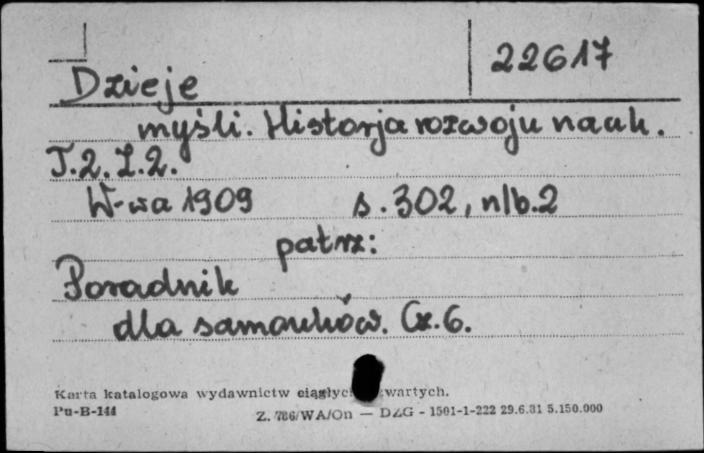 22617
Dzieje
myśli. Historja rozwoju nauk.
T.2. Z.2.
W-wa 1909 s. 302, nlb. 2
patrz:
Poradnik
dla samouków. Cz. 6.
Karta katalogowa wydawnictw wartych.
Pu-B-144
Z. 786/WA/On — DZG - 1501-1-222 29.6.81 5.150.000